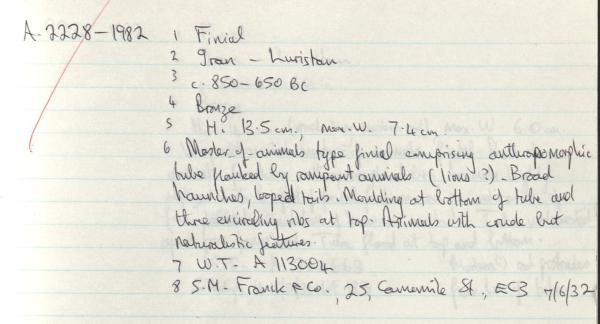 A. 2228-1982 1 Finial
2 Iran - Luristan
3 c. 850-650 BC
4 Bronze
5 H. 13.5 cm., max. W. 7.4 cm
6 Master-of-animals type finial comprising anthropomorphic
tube flanked by rampant animals (lions?). Broad
haunches, looped tails. Moulding at bottom of tube and
three encircling ribs at top. Animals with crude but
naturalistic features.
7 W.T- A 113004
8 S.M- Franck & Co., 25, Camomile St, EC3 7/6/32